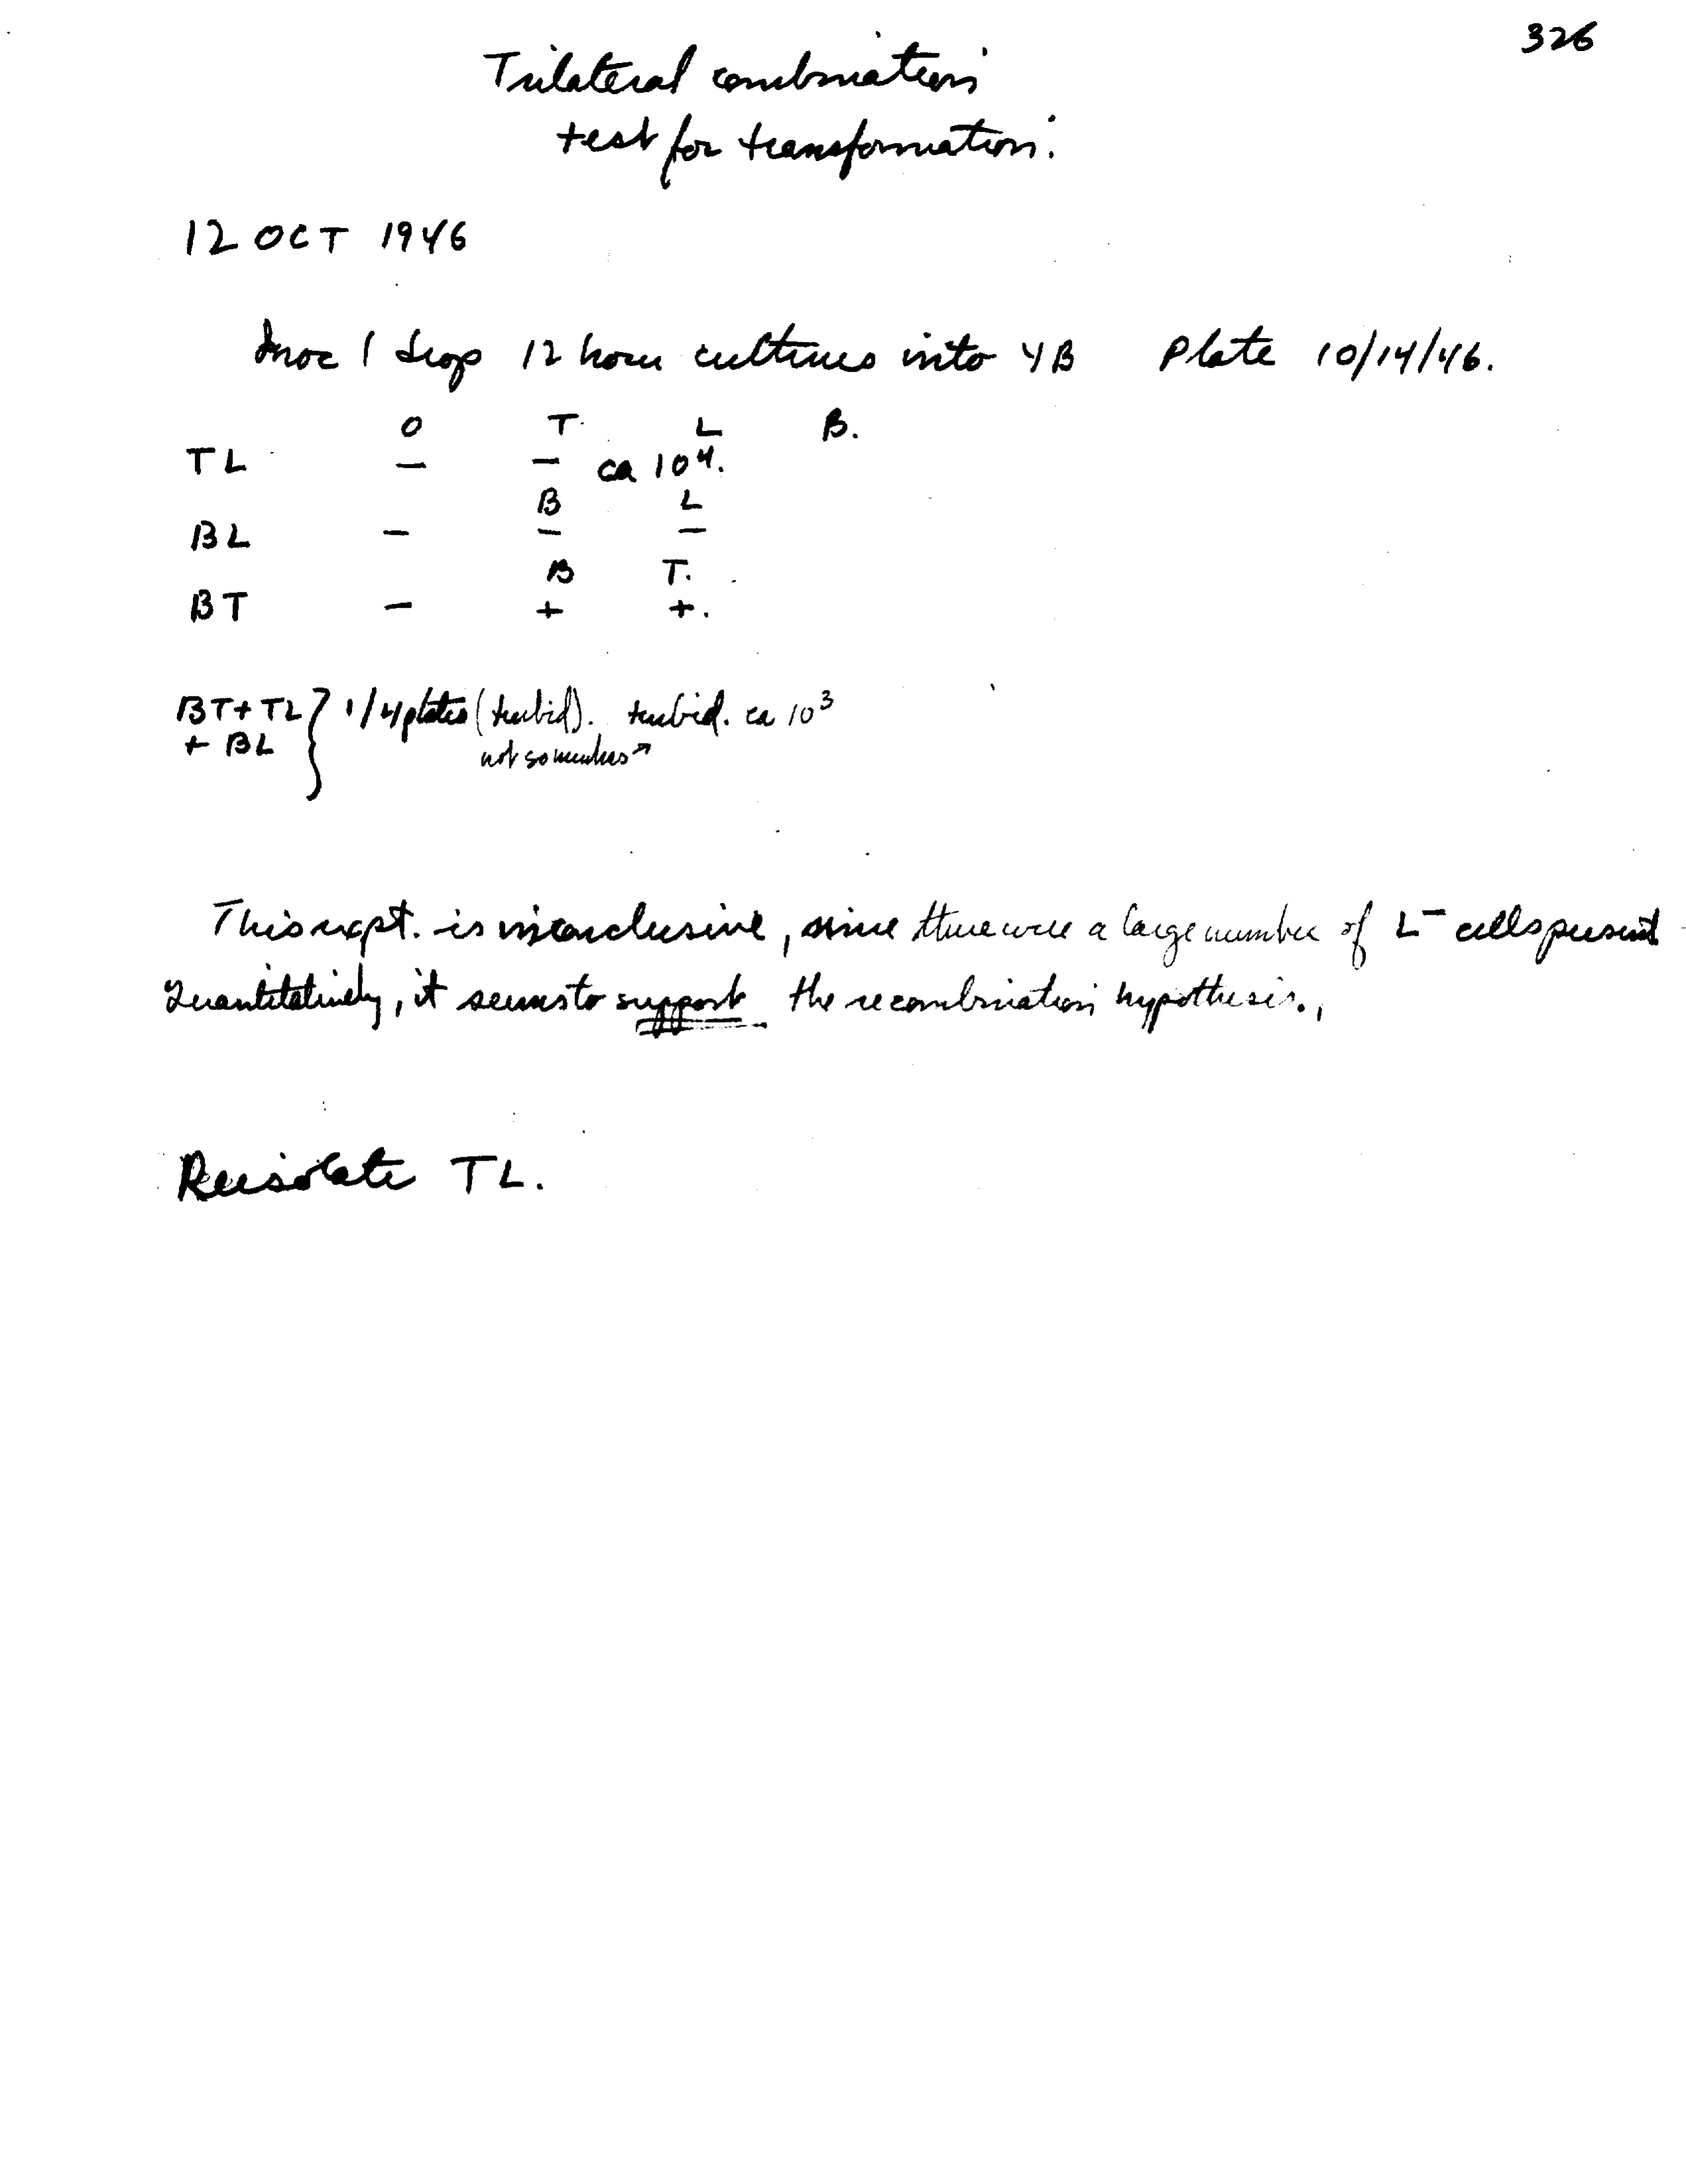 326
Trilateral combination
test for transformation.
12 OCT 1946
Inoc 1 drop 12 hour cultures into YB Plate 10/14/46.
O T L B.
TL — — ca 10⁴.
B L
BL — — —
B T.
BT — + +.
BT + TL } 1/4 plates (turbid). turbid. ca 10³
+ BL not so numbers ↗
This expt. is inconclusive, since there were a large number of L⁻ cells present
Quantitatively, it seems to support the recombination hypothesis.,
Reisolate TL.